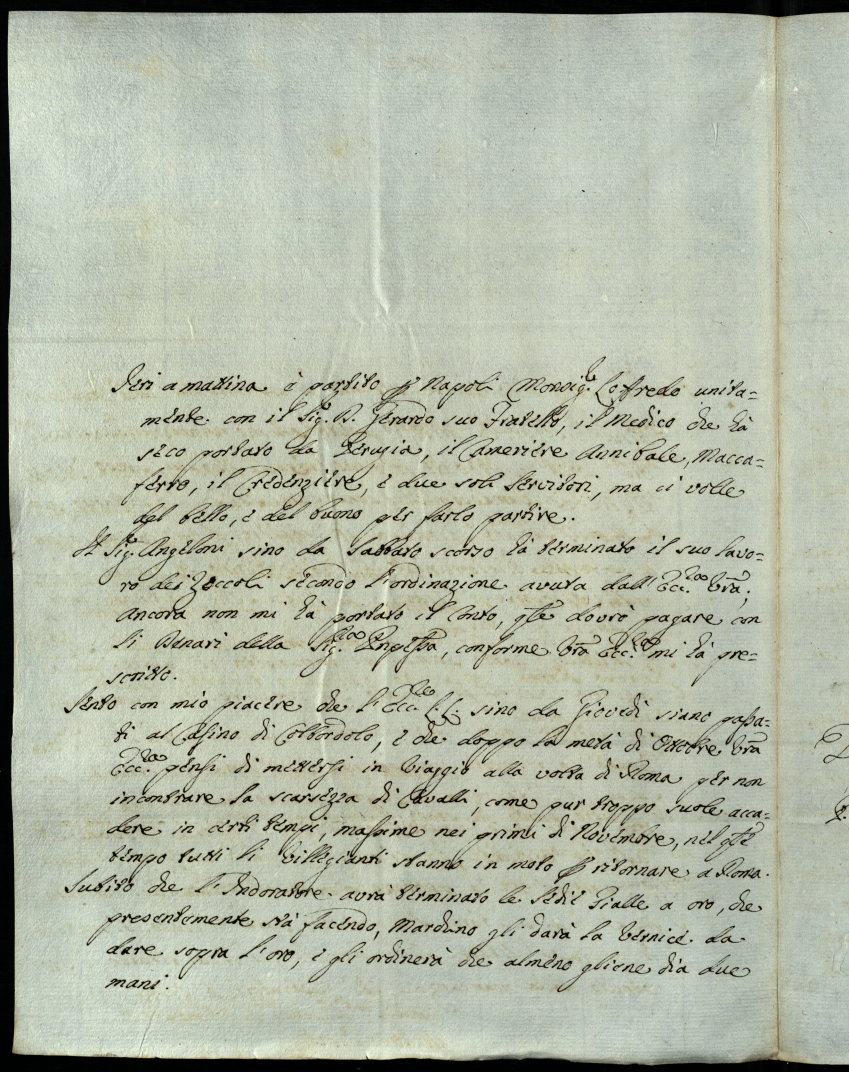 Ieri a mattina è partito p Napoli Monsig.e Loffredo unita=
mente con il Sig.e D. Gerardo suo Fratello, il Medico che hà
seco portato da Perugia, il Cameriere Annibale, Macca=
ferro, il Credenziere, e due soli servitori, ma ci volle
del bello, e del buono per farlo partire.
Il Sig.e Angeloni sino da Sabbato scorso hà terminato il suo lavo=
ro dei Zoccoli secondo l'ordinazione avuta dall'Ecc.za Vrã;
ancora non mi hà portato il Conto, qle dovrò pagare con
li Denari della Sig.ra, conforme Vrã Ecc.za mi hà pre=
scritto.
Sento con mio piacere che l'Ecc.ze L.L. sino da Giovedì siano passa=
ti al Casino di Colbordolo, e che doppo la metà di Ottobre Vrã
Ecc.za pensi di mettersi in viaggio alla volta di Roma per non
incontrare la scarsezza di Cavalli, come pur troppo suole acca=
dere in certi tempi, massime nei primi di Novembre, nel qle
tempo tutti li Villegianti stanno in moto p ritornare a Roma.
Subito che l'Indoratore avrà terminato le Sedie Gialle a oro, che
presentemente stà facendo, Mardino gli darà la Vernice da
dare sopra l'oro, e gli ordinerà che almeno gliene dia due
mani.